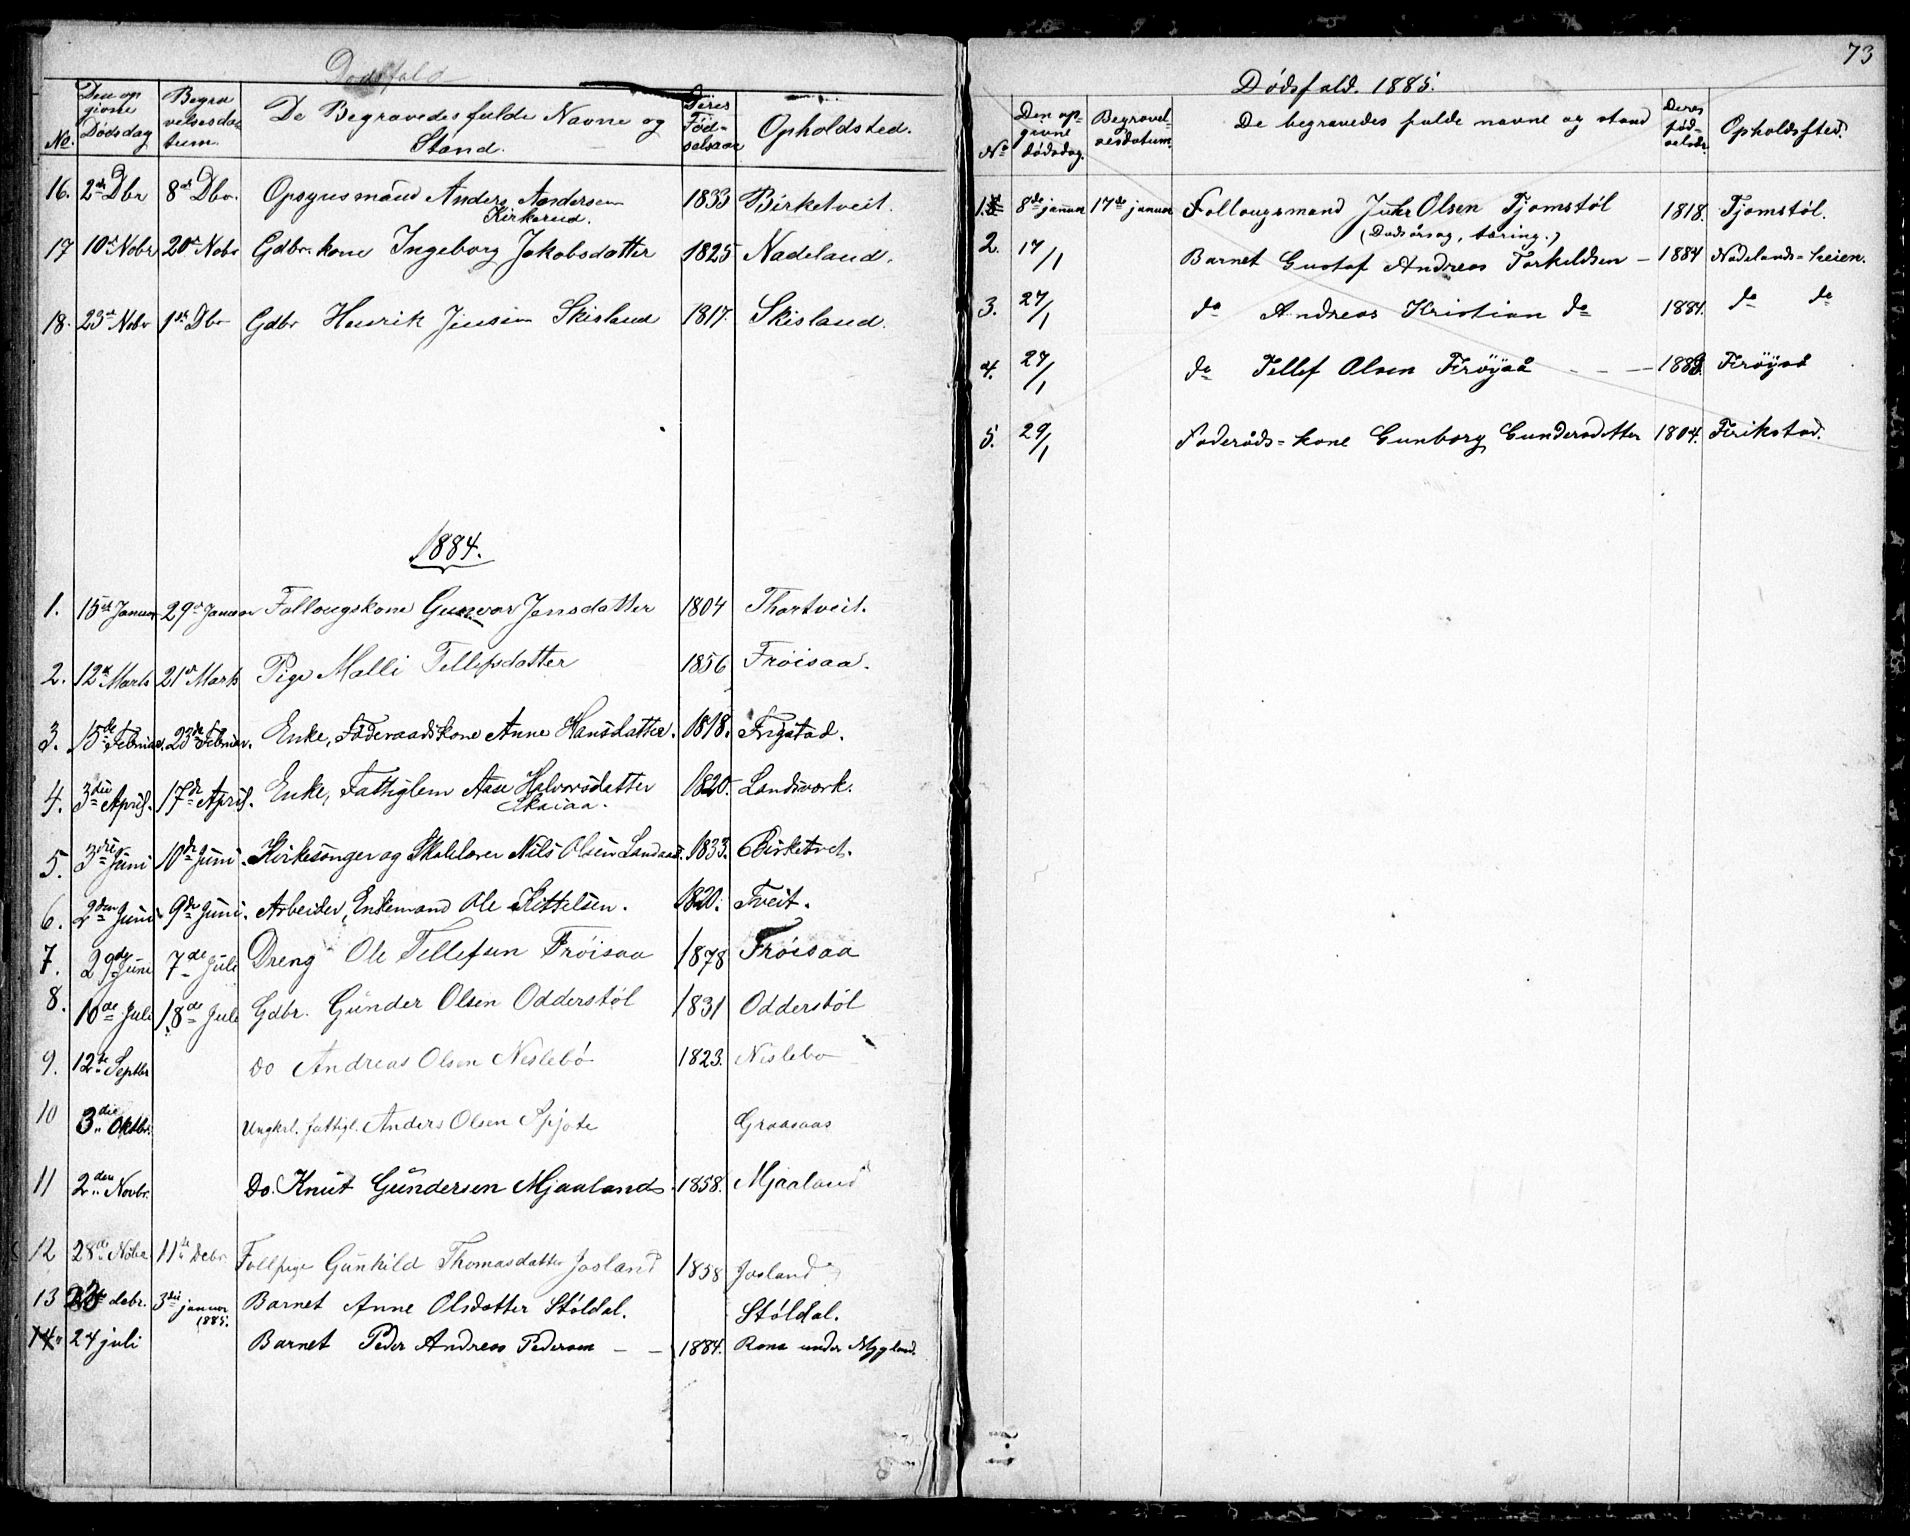 Dødsfald
No. Den opgivne Dødsdag Begravelsesdatum. De Begravedes fulde Navne og Stand. Deres Fødselsaar Opholdsted.
16. 2de Dbr 8de Dbr. Opsynsmand Anders Andersen 1833 Birketveit.
Kirkerud.
17 10de Nobr 20de Nobr Gdbr. kone Ingeborg Jakobsdatter 1825 Nadeland.
18. 23de Nobr 1ste Dbr Gdbr Henrik Jensen Skisland 1817. Skisland.
1884.
1. 15de Januar 29de Januar Follougskone Gunvor Jensdatter 1804 Thortveit.
2. 12te Marts 21de Marts Pige Malli Tellefsdatter 1856 Frøisaa.
3. 15de Februar. 23de Februar. Enke, Føderaadskone Anne Hansdatter. 1818. Frigstad.
4. 3die April. 17de April. Enke, Fattiglem Aase Halvorsdatter 1820. Landsværk.
Skaiaa.
5. 3die Juni 10de Juni. Kirkesanger og Skolelærer Nils Olsen Landaas. 1833. Birketvet.
6. 2den Juni 9de Juni. Arbeider, Enkemand Ole Kittelsen. 1820. Tveit.
7. 29de Juni 7de Juli Dreng Ole Tellefsen Frøisaa 1878 Frøisaa
8. 10de Juli 18de Juli Gdbr. Gunder Olsen Odderstøl 1831 Odderstøl
9. 12te Septbr Do Andreas Olsen Neslebø 1823. Neslebø
10 3die Oktbr. Ungkrl. fattigl. Anders Olsen Spjote Graasaas
11 2den Novbr. Do. Knut Gundersen Mjaaland 1858. Mjaaland
12 28de Nobr 11te Debr. Follpige Gunhild Thomasdatter Josland 1858 Josland
13 23 debr. 3die januar 1885. Barnet Anne Olsdatter Støldal. Støldal.
14. 24 juli Barnet Peder Andreas Pedersen – – 1884. Rona under Mygland.
73
Dødsfald. 1885.
No Den opgivne dødsdag. Begravelsesdatum. De begravedes fulde navne og stand Deres fødselsår. Opholdssted.
1. 8de januar 17de januar Follougsmand Juhr Olsen Tjomstøl 1818. Tjomstøl.
(Dødsårsag, tæring.)
2. 17/1 Barnet Gustaf Andreas Torkildsen – 1884 Nødelands-heien.
3. 27/1 do Andreas Kristian do 1884. do do
4. 27/1 do Tellef Olsen Frøÿså – – – 1883. Frøÿså
5. 29/1 Føderåds-kone Gunborg Gundersdatter 1804. Frikstad.